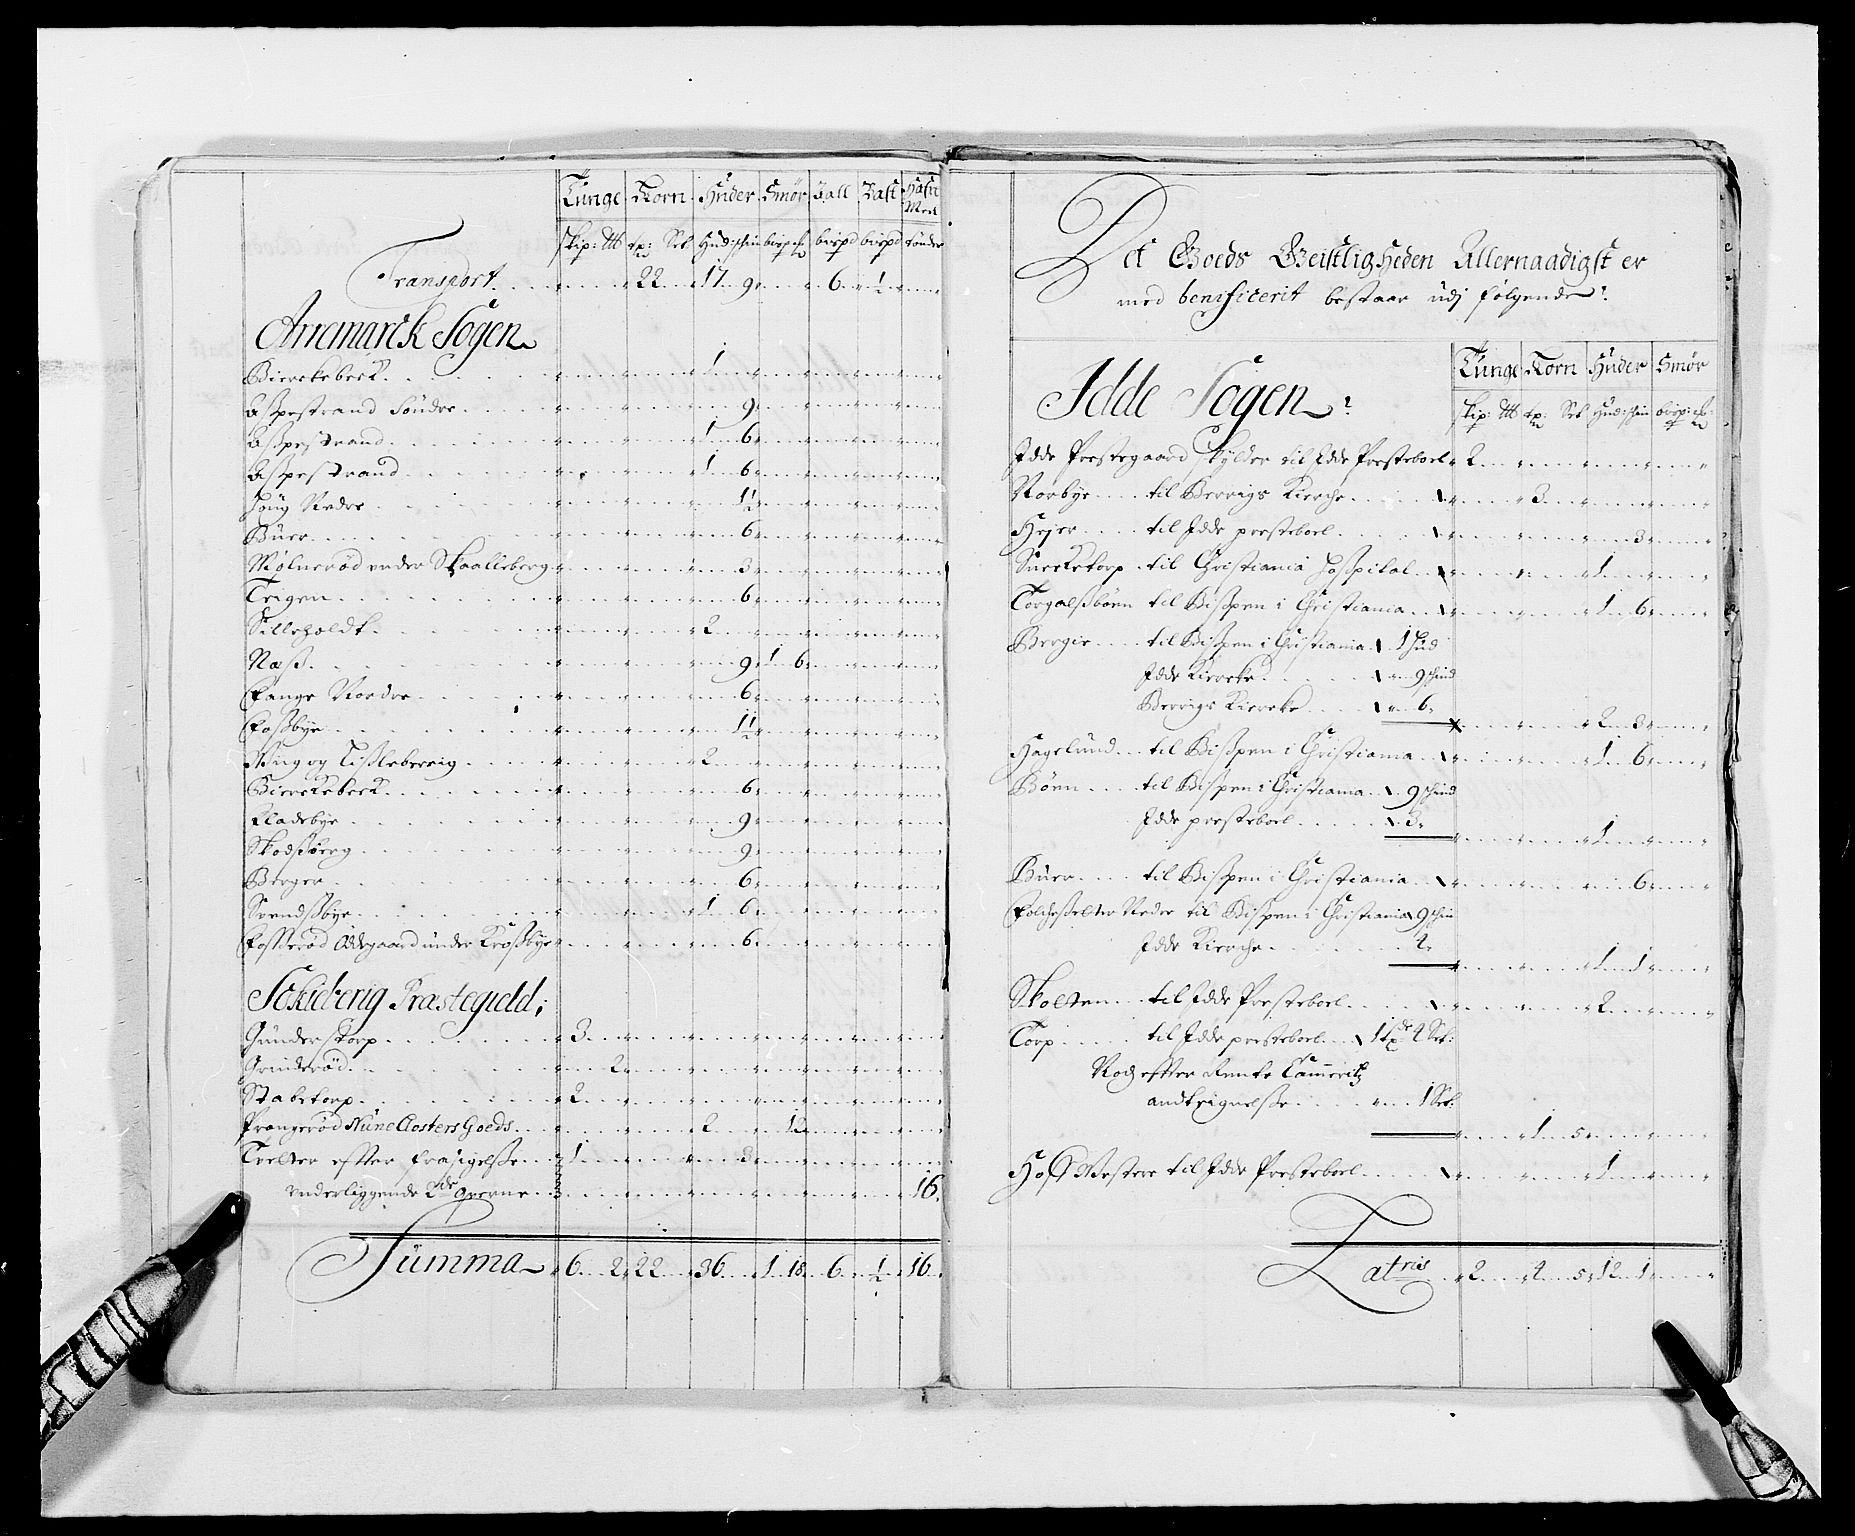 Tunge Korn Huder Smør Tall Bast Hafre Meel
skip: ℔ tp: Set Hud: skin bispd bispd bispd tønder
Transport 22 17 9 6 ½
Arremarck Sogen
Bierckebeck 1
Aspestrand Søndre 9
Aspestrand 1 6
Aspestrand 1 6
Nedre 1½
Buer 6
Mølnerød under Skaalleberg 3
Teigen 6
Silleholdt 2
Næss 9 1 6
Fange Nordre 6
Fossbye 1½
Ving og Tisleberrig 2
Bierckebeck 6
Fladebye 9
Skodsberg 9
Berger 6
Svendsbye 1 6
Fosserød Ødegaard under Krosbye 6
Schieberig Præstegield;
Gunderstorp 3
Grinderød 2
Stabetorp 2
Prangerød Nune Closters Goeds 2 12
Tvelter efter frasigelse 1 3
underliggende 2de qverne 16
Summa 6 2 22 36 1 18 6 ½ 16
Det Goeds Geistligheden Allernaadigst er
med benificerit bestaar udj følgende
Tunge Korn Huder Smør
Idde Sogen
skip: ℔ tp: Set Hud: skin bispd:
Idde Prestegaard skylder til Idde Presteboel 2
Norbye til Berrigs Kierche 3
Hejer til Idde presteboel 3
Sneckctorp til Christiania Hospital 1
Torgalsbøen til Bispen i Christiania 1 6
Bergie til Bispen i Christiania 1 Hud
Idde Kiercke 9 skind
Berrigs Kiercke 6
2 3
Hagelund til Bispen i Christiania 1 6
Bøen til Bispen i Christiania 9 skind
Idde presteboel 3
1
Buer til Bispen i Christiania 6
Nedre til Bispen i Christiania 9 skin
Idde Kierche 4
1 1
Skolten til Idde Presteboel 2
Torp til Idde presteboel 1 tp 4 Set:
Noch efter Rente Cammeritz
andteignelse 1 Set:
1 5
Hoff Westere til Idde Presteboel 1
Latris 2 4 5 12 1